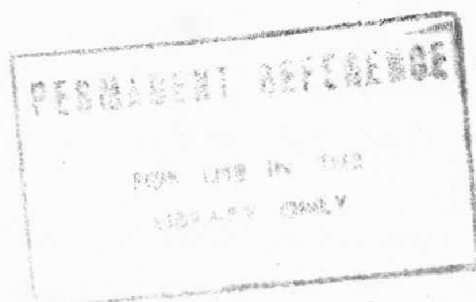 PERMANENT REFERENCE
FOR USE IN THE
LIBRARY ONLY